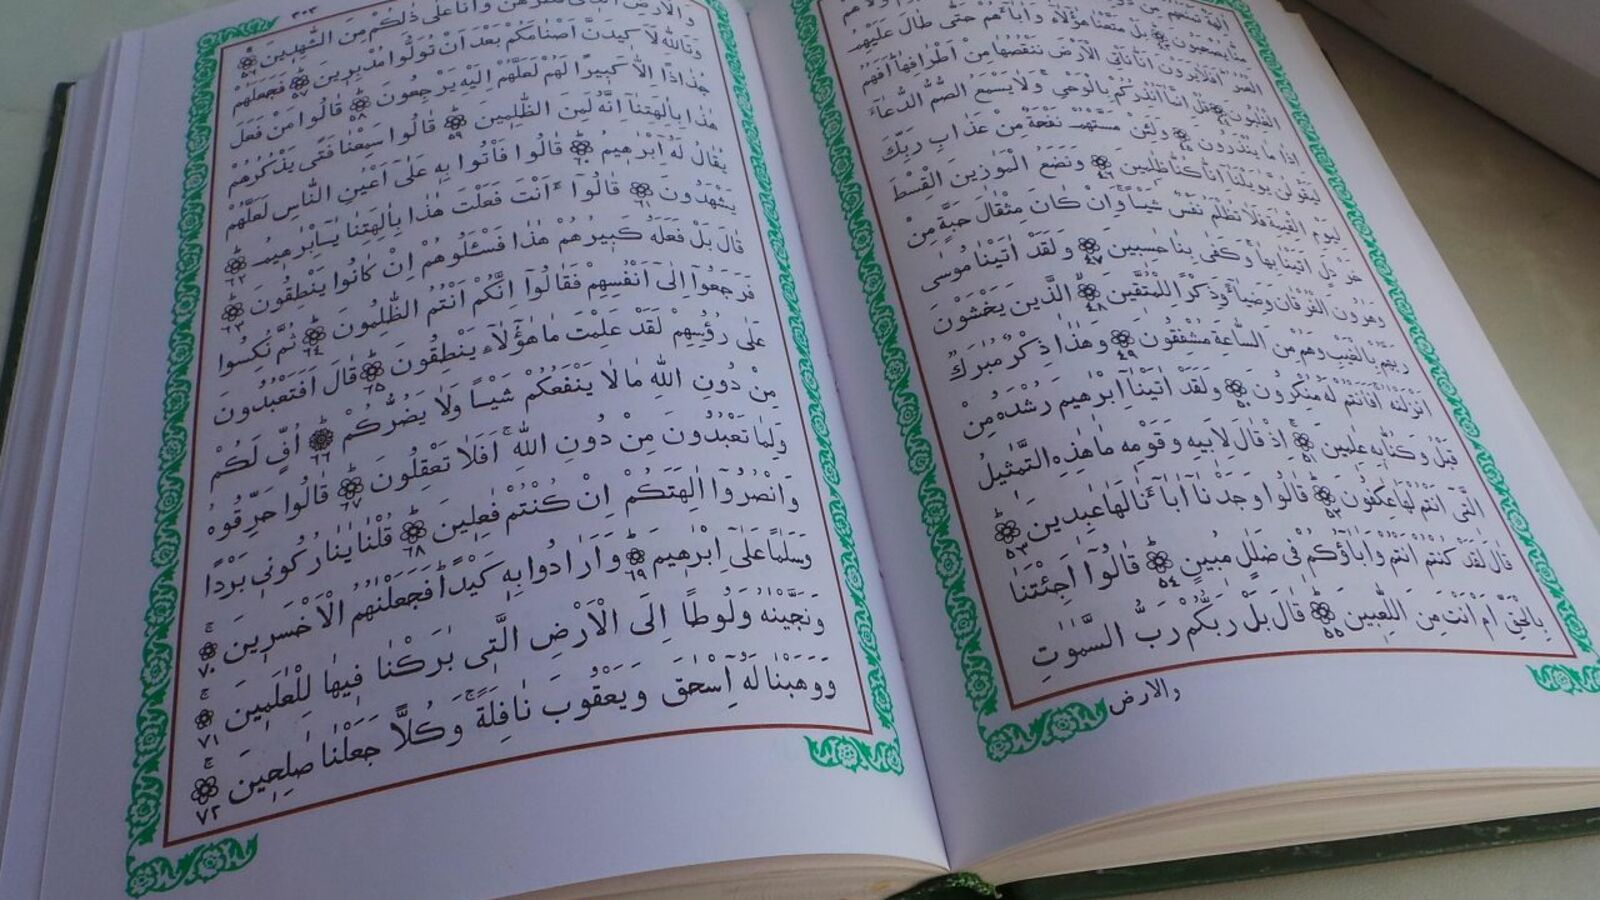 الِهَةٌ تَمْنَعُهُمْ مِنْ
مِنَّا يُصْحَبُونَ ٤٣ بَلْ مَتَّعْنَا هٰٓؤُلَٓاءِ وَاٰبَٓاءَهُمْ حَتّٰى طَالَ عَلَيْهِمُ
الْعُمُرُ اَفَلَا يَرَوْنَ اَنَّا نَأْتِى الْاَرْضَ نَنْقُصُهَا مِنْ اَطْرَافِهَا اَفَهُمُ
الْغَالِبُونَ ٤٤ قُلْ اِنَّمَٓا اُنْذِرُكُمْ بِالْوَحْىِ وَلَا يَسْمَعُ الصُّمُّ الدُّعَٓاءَ
اِذَا مَا يُنْذَرُونَ ٤٥ وَلَئِنْ مَسَّتْهُمْ نَفْحَةٌ مِنْ عَذَابِ رَبِّكَ
لَيَقُولُنَّ يَا وَيْلَنَٓا اِنَّا كُنَّا ظَالِمِينَ ٤٦ وَنَضَعُ الْمَوَازِينَ الْقِسْطَ
لِيَوْمِ الْقِيٰمَةِ فَلَا تُظْلَمُ نَفْسٌ شَيْـًٔا وَاِنْ كَانَ مِثْقَالَ حَبَّةٍ مِنْ
خَرْدَلٍ اَتَيْنَا بِهَا وَكَفٰى بِنَا حَاسِبِينَ ٤٧ وَلَقَدْ اٰتَيْنَا مُوسٰى
وَهٰرُونَ الْفُرْقَانَ وَضِيَٓاءً وَذِكْرًا لِلْمُتَّقِينَ ٤٨ اَلَّذِينَ يَخْشَوْنَ
رَبَّهُمْ بِالْغَيْبِ وَهُمْ مِنَ السَّاعَةِ مُشْفِقُونَ ٤٩ وَهٰذَا ذِكْرٌ مُبَارَكٌ
اَنْزَلْنَاهُ اَفَاَنْتُمْ لَهُ مُنْكِرُونَ ٥٠ وَلَقَدْ اٰتَيْنَٓا اِبْرٰهِيمَ رُشْدَهُ مِنْ
قَبْلُ وَكُنَّا بِهِ عَالِمِينَ ٥١ اِذْ قَالَ لِاَبِيهِ وَقَوْمِهِ مَا هٰذِهِ التَّمَاثِيلُ
الَّتِٓى اَنْتُمْ لَهَا عَاكِفُونَ ٥٢ قَالُوا وَجَدْنَٓا اٰبَٓاءَنَا لَهَا عَابِدِينَ ٥٣
قَالَ لَقَدْ كُنْتُمْ اَنْتُمْ وَاٰبَٓاؤُكُمْ فِى ضَلَالٍ مُبِينٍ ٥٤ قَالُٓوا اَجِئْتَنَا
بِالْحَقِّ اَمْ اَنْتَ مِنَ اللَّاعِبِينَ ٥٥ قَالَ بَلْ رَبُّكُمْ رَبُّ السَّمٰوَاتِ
والارض
٣٠٣
وَالْاَرْضِ الَّذِى فَطَرَهُنَّ وَاَنَا عَلٰى ذٰلِكُمْ مِنَ الشَّاهِدِينَ ٥٦
وَتَاللّٰهِ لَاَكِيدَنَّ اَصْنَامَكُمْ بَعْدَ اَنْ تُوَلُّوا مُدْبِرِينَ ٥٧ فَجَعَلَهُمْ
جُذَاذًا اِلَّا كَبِيرًا لَهُمْ لَعَلَّهُمْ اِلَيْهِ يَرْجِعُونَ ٥٨ قَالُوا مَنْ فَعَلَ
هٰذَا بِاٰلِهَتِنَٓا اِنَّهُ لَمِنَ الظَّالِمِينَ ٥٩ قَالُوا سَمِعْنَا فَتًى يَذْكُرُهُمْ
يُقَالُ لَهُٓ اِبْرٰهِيمُ ٦٠ قَالُوا فَأْتُوا بِهِ عَلٰٓى اَعْيُنِ النَّاسِ لَعَلَّهُمْ
يَشْهَدُونَ ٦١ قَالُٓوا ءَاَنْتَ فَعَلْتَ هٰذَا بِاٰلِهَتِنَا يَٓا اِبْرٰهِيمُ ٦٢
قَالَ بَلْ فَعَلَهُ كَبِيرُهُمْ هٰذَا فَسْـَٔلُوهُمْ اِنْ كَانُوا يَنْطِقُونَ ٦٣
فَرَجَعُٓوا اِلٰٓى اَنْفُسِهِمْ فَقَالُٓوا اِنَّكُمْ اَنْتُمُ الظَّالِمُونَ ٦٤ ثُمَّ نُكِسُوا
عَلٰى رُؤُسِهِمْ لَقَدْ عَلِمْتَ مَا هٰٓؤُلَٓاءِ يَنْطِقُونَ ٦٥ قَالَ اَفَتَعْبُدُونَ
مِنْ دُونِ اللّٰهِ مَا لَا يَنْفَعُكُمْ شَيْـًٔا وَلَا يَضُرُّكُمْ ٦٦ اُفٍّ لَكُمْ
وَلِمَا تَعْبُدُونَ مِنْ دُونِ اللّٰهِ اَفَلَا تَعْقِلُونَ ٦٧ قَالُوا حَرِّقُوهُ
وَانْصُرُٓوا اٰلِهَتَكُمْ اِنْ كُنْتُمْ فَاعِلِينَ ٦٨ قُلْنَا يَا نَارُ كُونِى بَرْدًا
وَسَلَامًا عَلٰٓى اِبْرٰهِيمَ ٦٩ وَاَرَادُوا بِهِ كَيْدًا فَجَعَلْنَاهُمُ الْاَخْسَرِينَ ٧٠
وَنَجَّيْنَاهُ وَلُوطًا اِلَى الْاَرْضِ الَّتِى بَارَكْنَا فِيهَا لِلْعَالَمِينَ ٧١
وَوَهَبْنَا لَهُٓ اِسْحٰقَ وَيَعْقُوبَ نَافِلَةً وَكُلًّا جَعَلْنَا صَالِحِينَ ٧٢